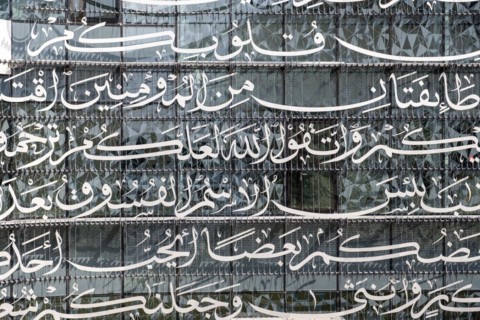 فِي قُلُوبِكُمْ
طَائِفَتَانِ مِنَ الْمُؤْمِنِينَ اقْتَ
يْكُمْ وَاتَّقُوا اللَّهَ لَعَلَّكُمْ تُرْحَمُو
بِئْسَ الِاسْمُ الْفُسُوقُ بَعْدَ
عْضُكُم بَعْضًا أَيُحِبُّ أَحَدُ
كَرٍ وَأُنثَىٰ وَجَعَلْنَاكُمْ شُعُ